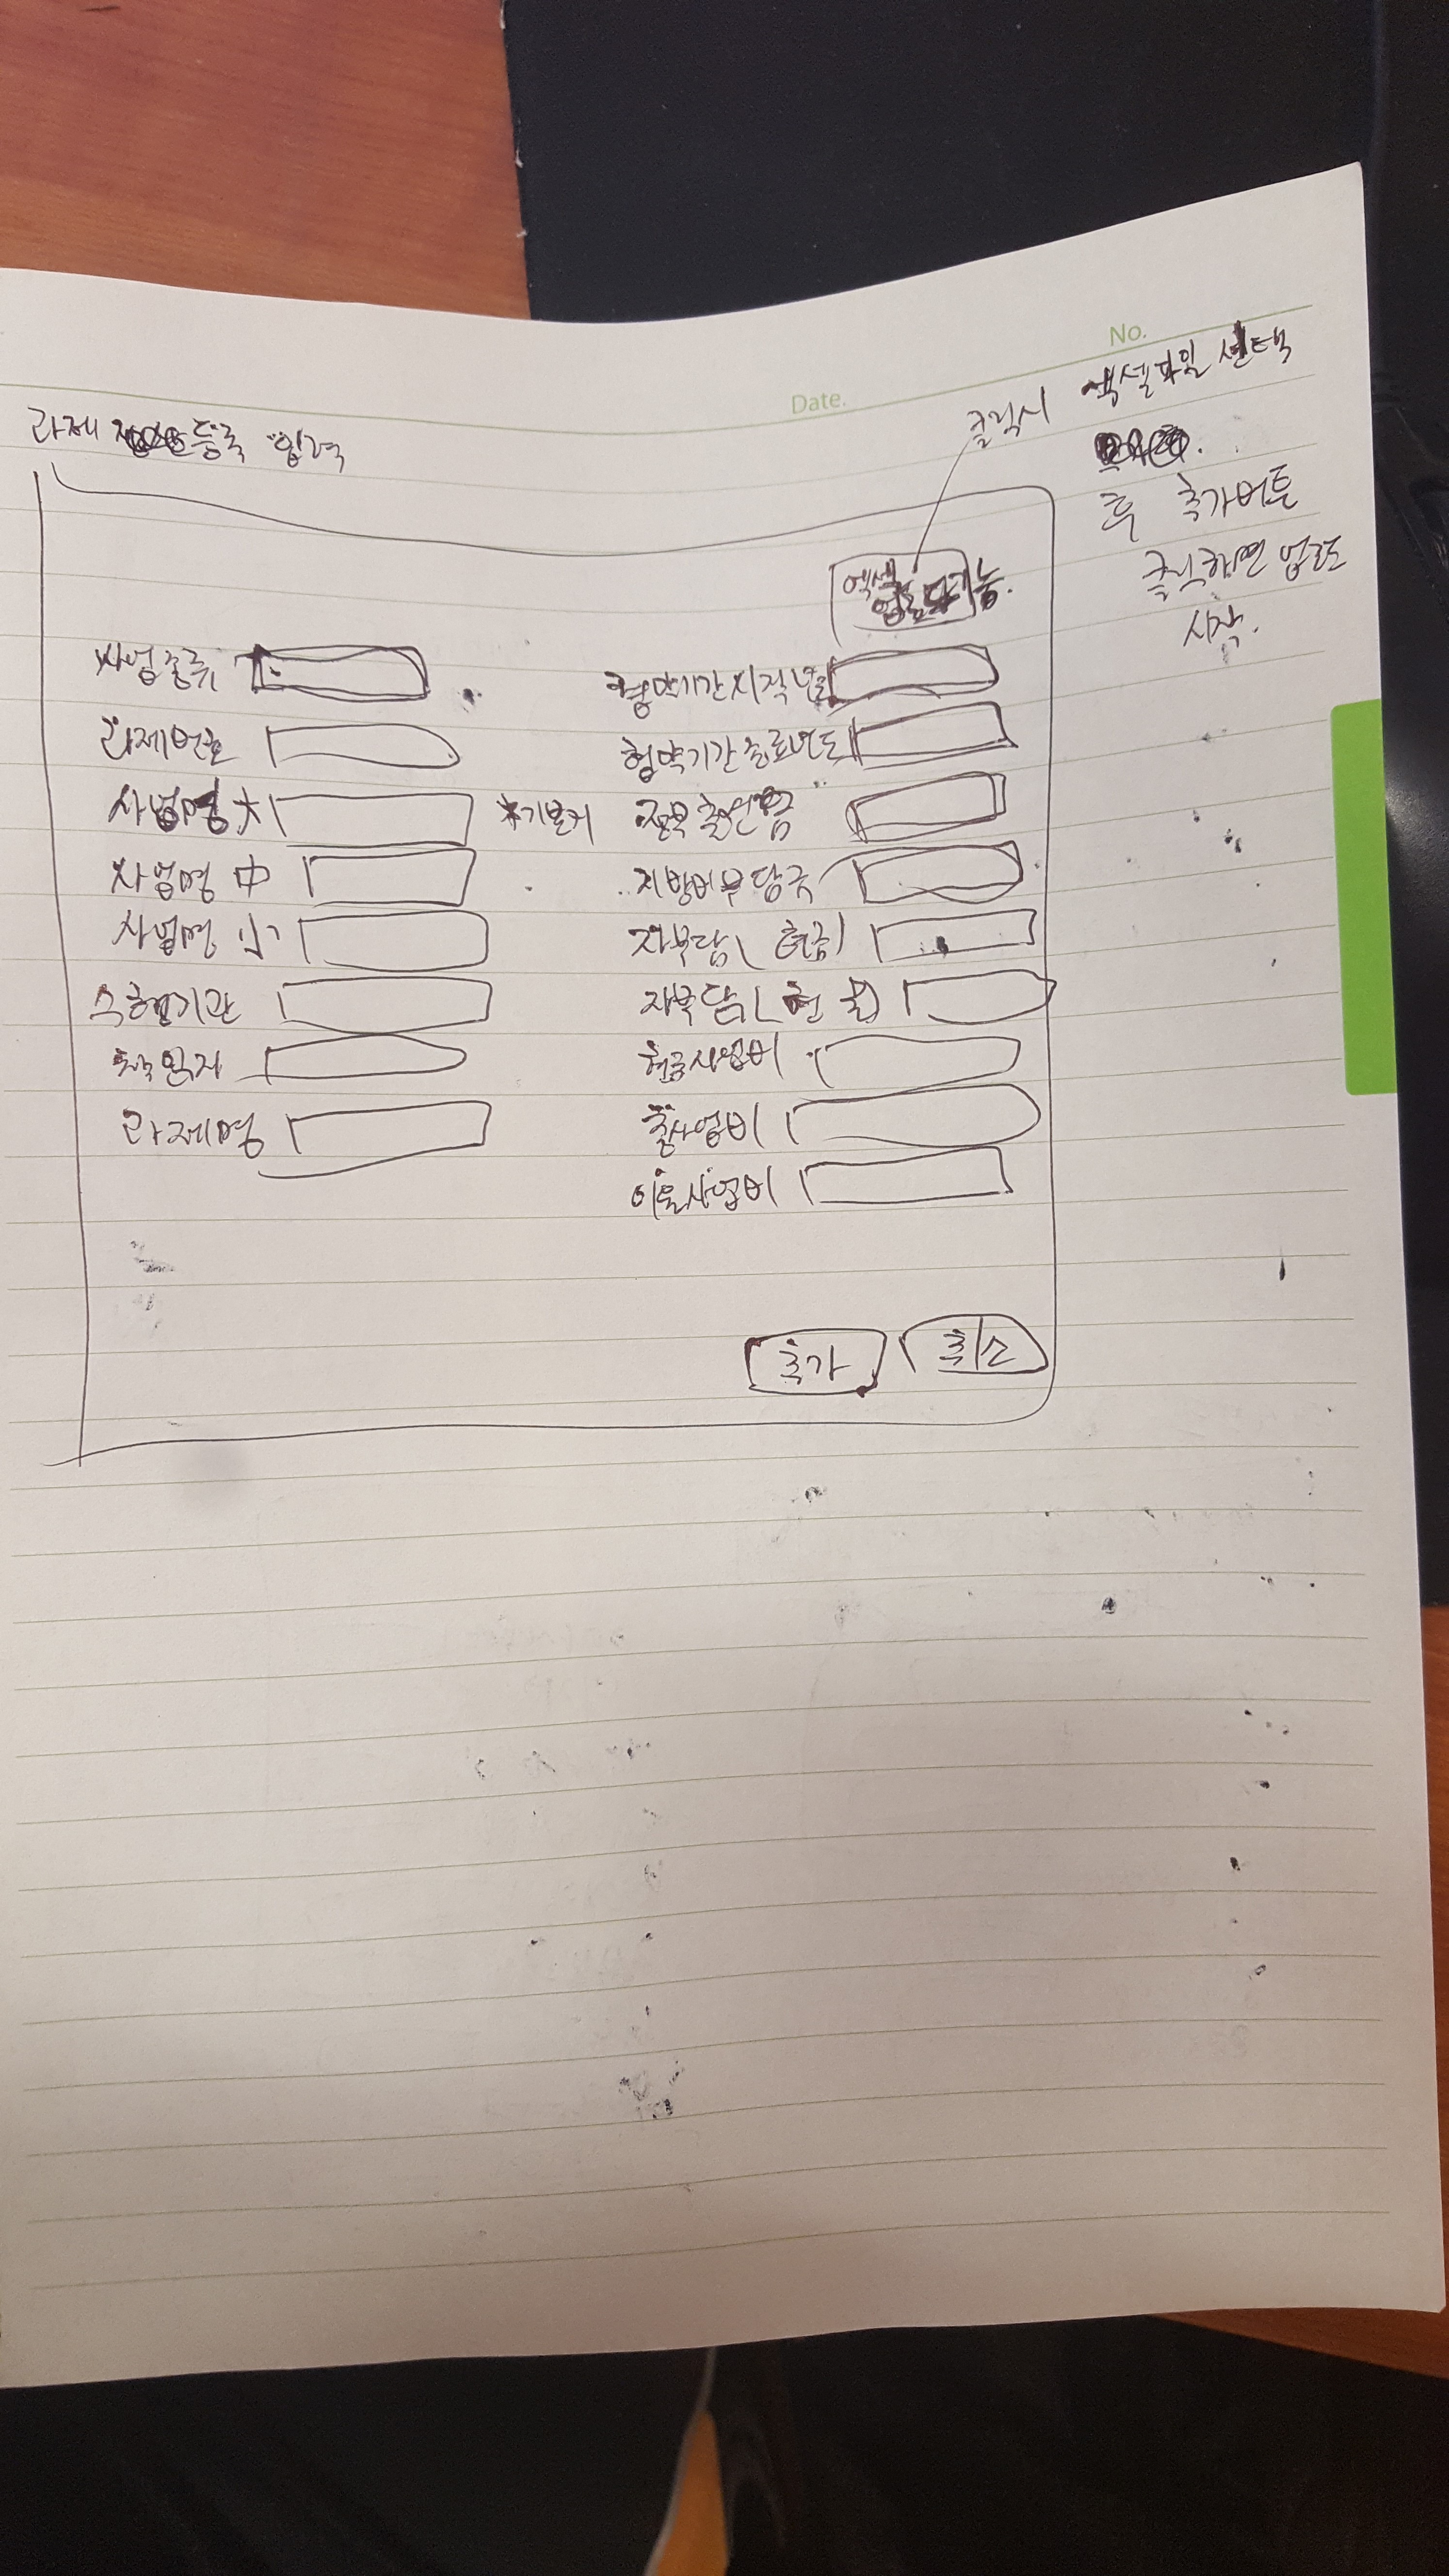 No.
Date.
과제 등록 입력
클릭시 엑셀파일 선택
후 추가버튼
클릭하면 업로드
시작.
엑셀
업로드기능.
사업종류
과제번호
사업명 大
사업명 中
사업명 小
수행기관
책임자
과제명
협약기간시작년도
협약기간종료년도
정부출연금
지방비부담금
자부담 (현금)
자부담 (현물)
현금사업비
총사업비
이월사업비
추가
취소